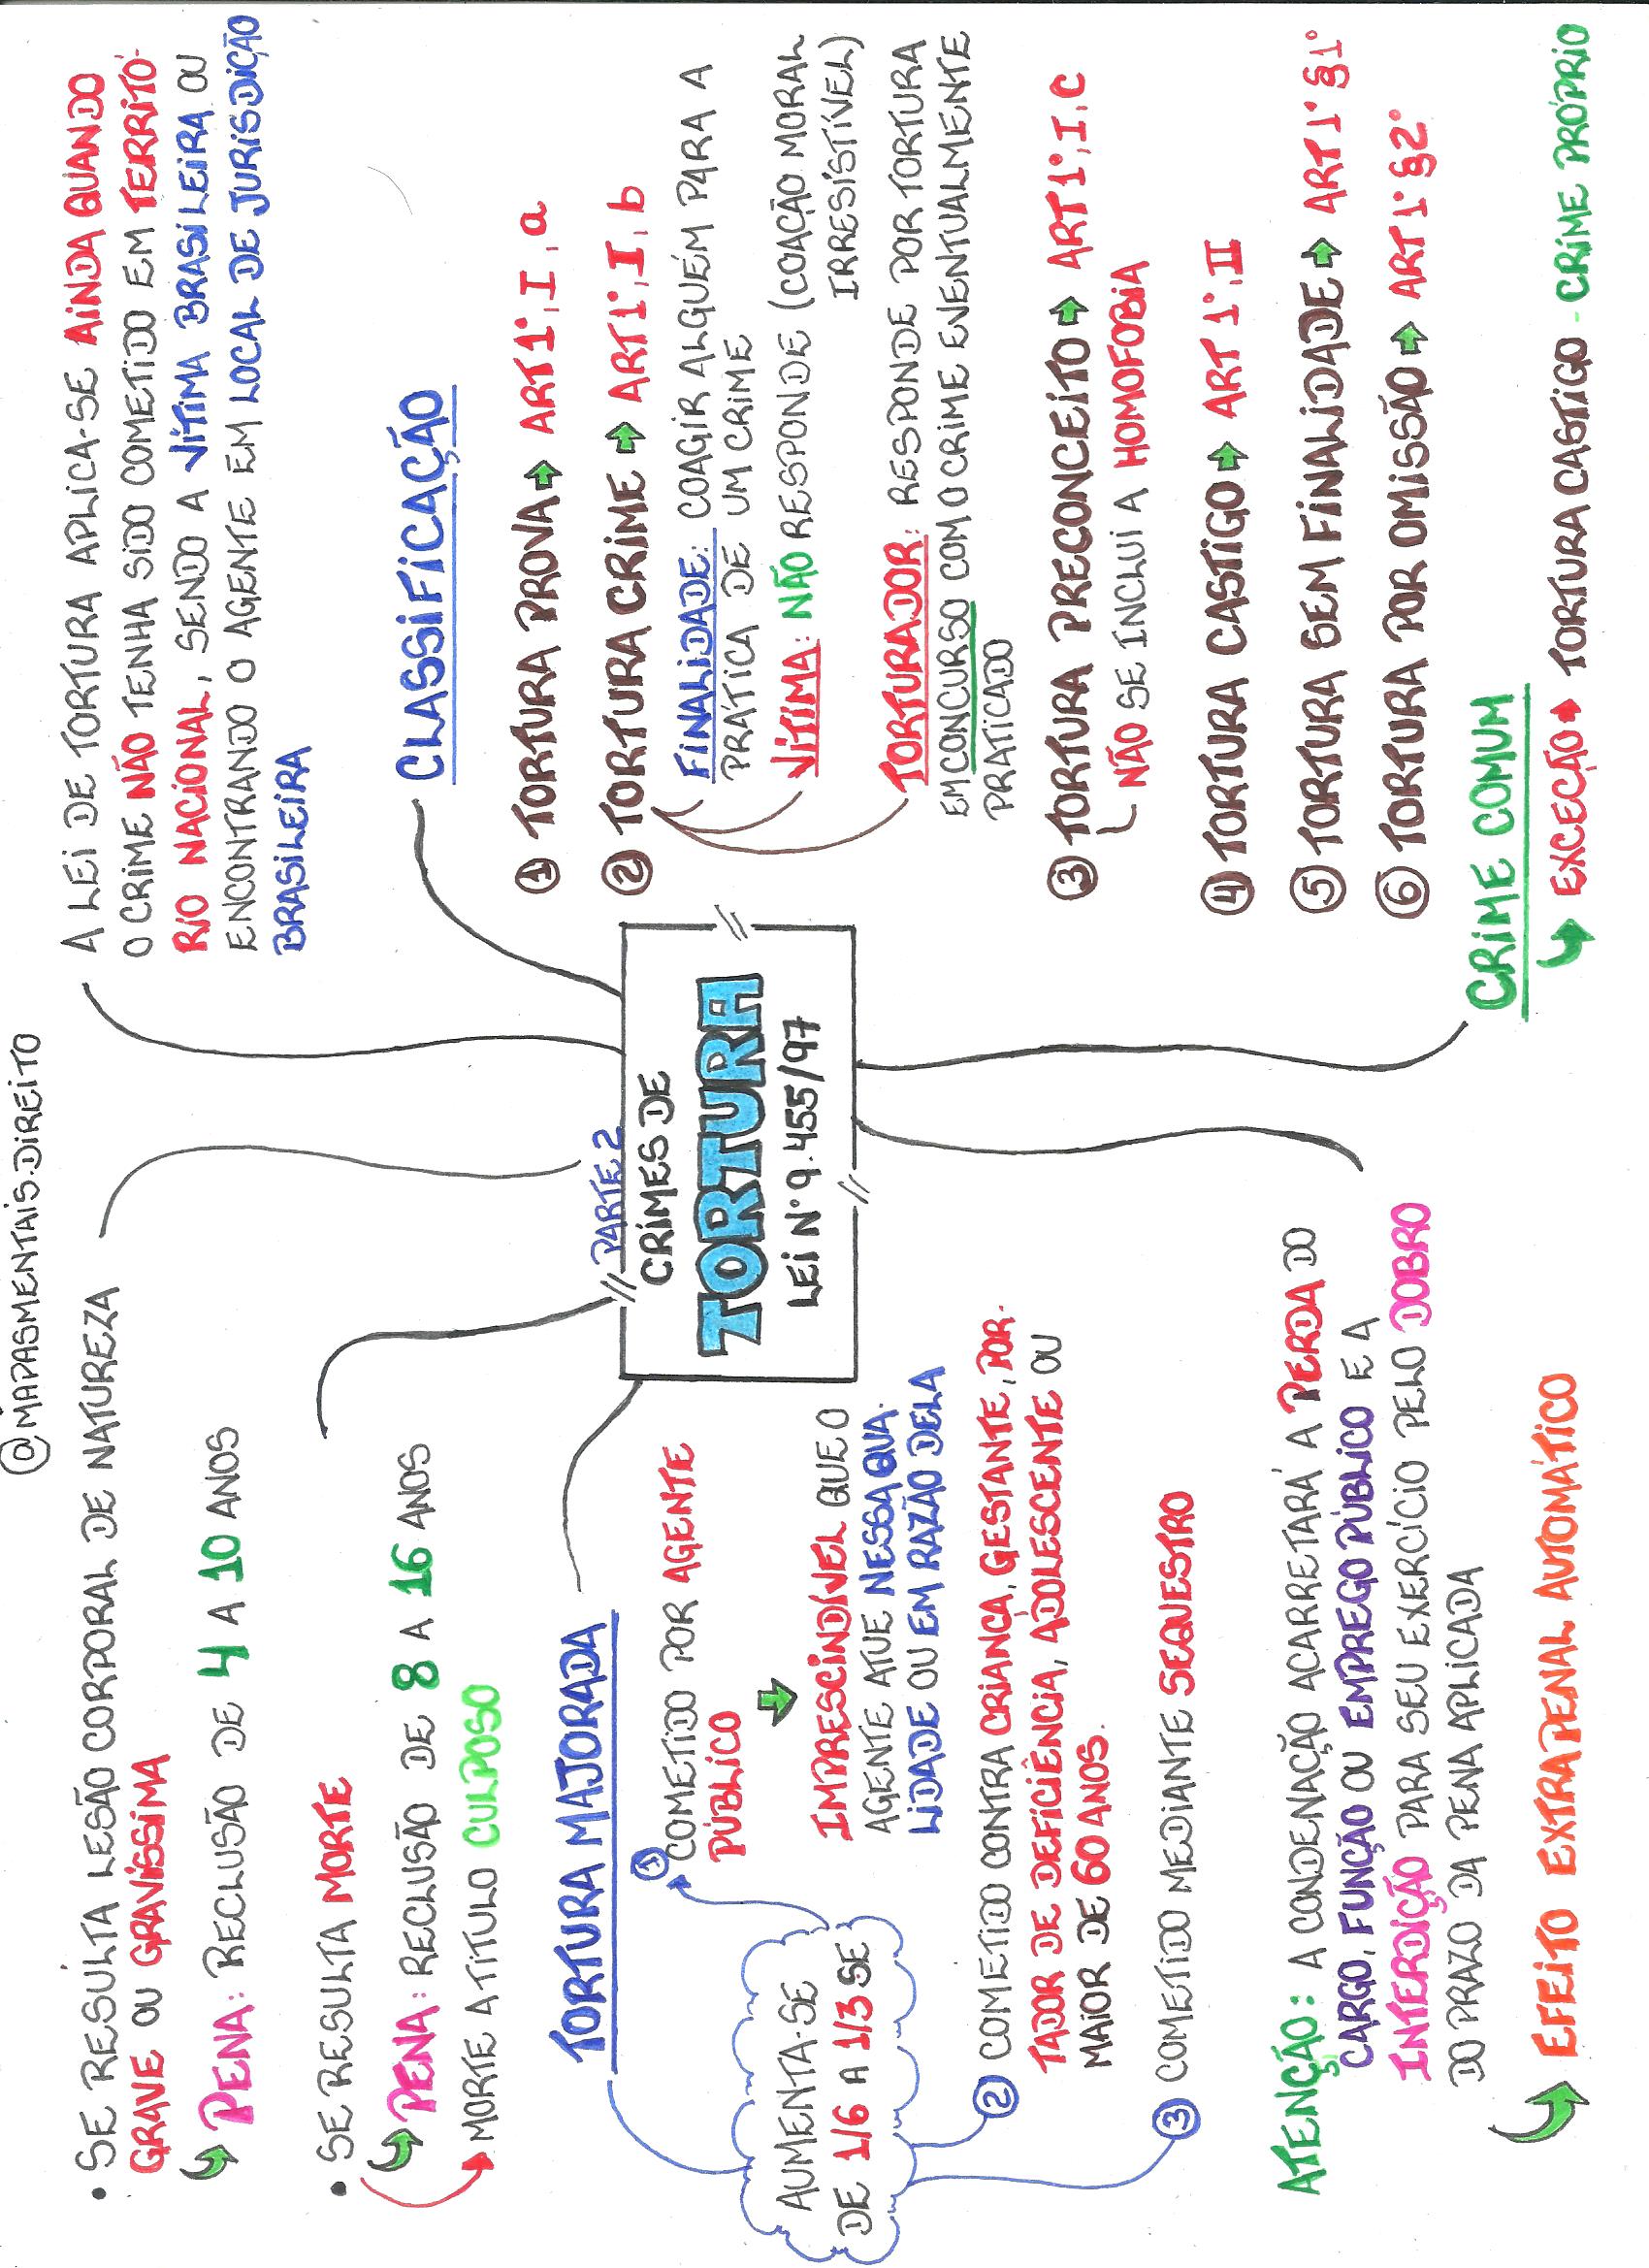 @MAPASMENTAIS.DIREITO
• SE RESULTA LESÃO CORPORAL DE NATUREZA
GRAVE OU GRAVÍSSIMA
PENA: RECLUSÃO DE 4 A 10 ANOS
• SE RESULTA MORTE
PENA: RECLUSÃO DE 8 A 16 ANOS
MORTE A TÍTULO CULPOSO
TORTURA MAJORADA
AUMENTA-SE
DE 1/6 A 1/3 SE
1 COMETIDO POR AGENTE
PÚBLICO
IMPRESCINDÍVEL QUE O
AGENTE ATUE NESSA QUA-
LIDADE OU EM RAZÃO DELA
2 COMETIDO CONTRA CRIANÇA, GESTANTE, POR-
TADOR DE DEFICIÊNCIA, ADOLESCENTE OU
MAIOR DE 60 ANOS.
3 COMETIDO MEDIANTE SEQUESTRO
ATENÇÃO: A CONDENAÇÃO ACARRETARÁ A PERDA DO
CARGO, FUNÇÃO OU EMPREGO PÚBLICO E A
INTERDIÇÃO PARA SEU EXERCÍCIO PELO DOBRO
DO PRAZO DA PENA APLICADA
EFEITO EXTRAPENAL AUTOMÁTICO
PARTE 2
CRIMES DE
TORTURA
LEI Nº 9.455/97
A LEI DE TORTURA APLICA-SE AINDA QUANDO
O CRIME NÃO TENHA SIDO COMETIDO EM TERRITÓ-
RIO NACIONAL, SENDO A VÍTIMA BRASILEIRA OU
ENCONTRANDO O AGENTE EM LOCAL DE JURISDIÇÃO
BRASILEIRA
CLASSIFICAÇÃO
1 TORTURA PROVA ➡ ART 1º, I, a
2 TORTURA CRIME ➡ ART 1º, I, b
FINALIDADE: COAGIR ALGUÉM PARA A
PRÁTICA DE UM CRIME
VÍTIMA: NÃO RESPONDE (COAÇÃO MORAL
IRRESISTÍVEL)
TORTURADOR: RESPONDE POR TORTURA
EM CONCURSO COM O CRIME EVENTUALMENTE
PRATICADO
3 TORTURA PRECONCEITO ➡ ART 1º, I, C
NÃO SE INCLUI A HOMOFOBIA
4 TORTURA CASTIGO ➡ ART 1º, II
5 TORTURA SEM FINALIDADE ➡ ART 1º §1º
6 TORTURA POR OMISSÃO ➡ ART 1º §2º
CRIME COMUM
EXCEÇÃO ➡ TORTURA CASTIGO - CRIME PRÓPRIO